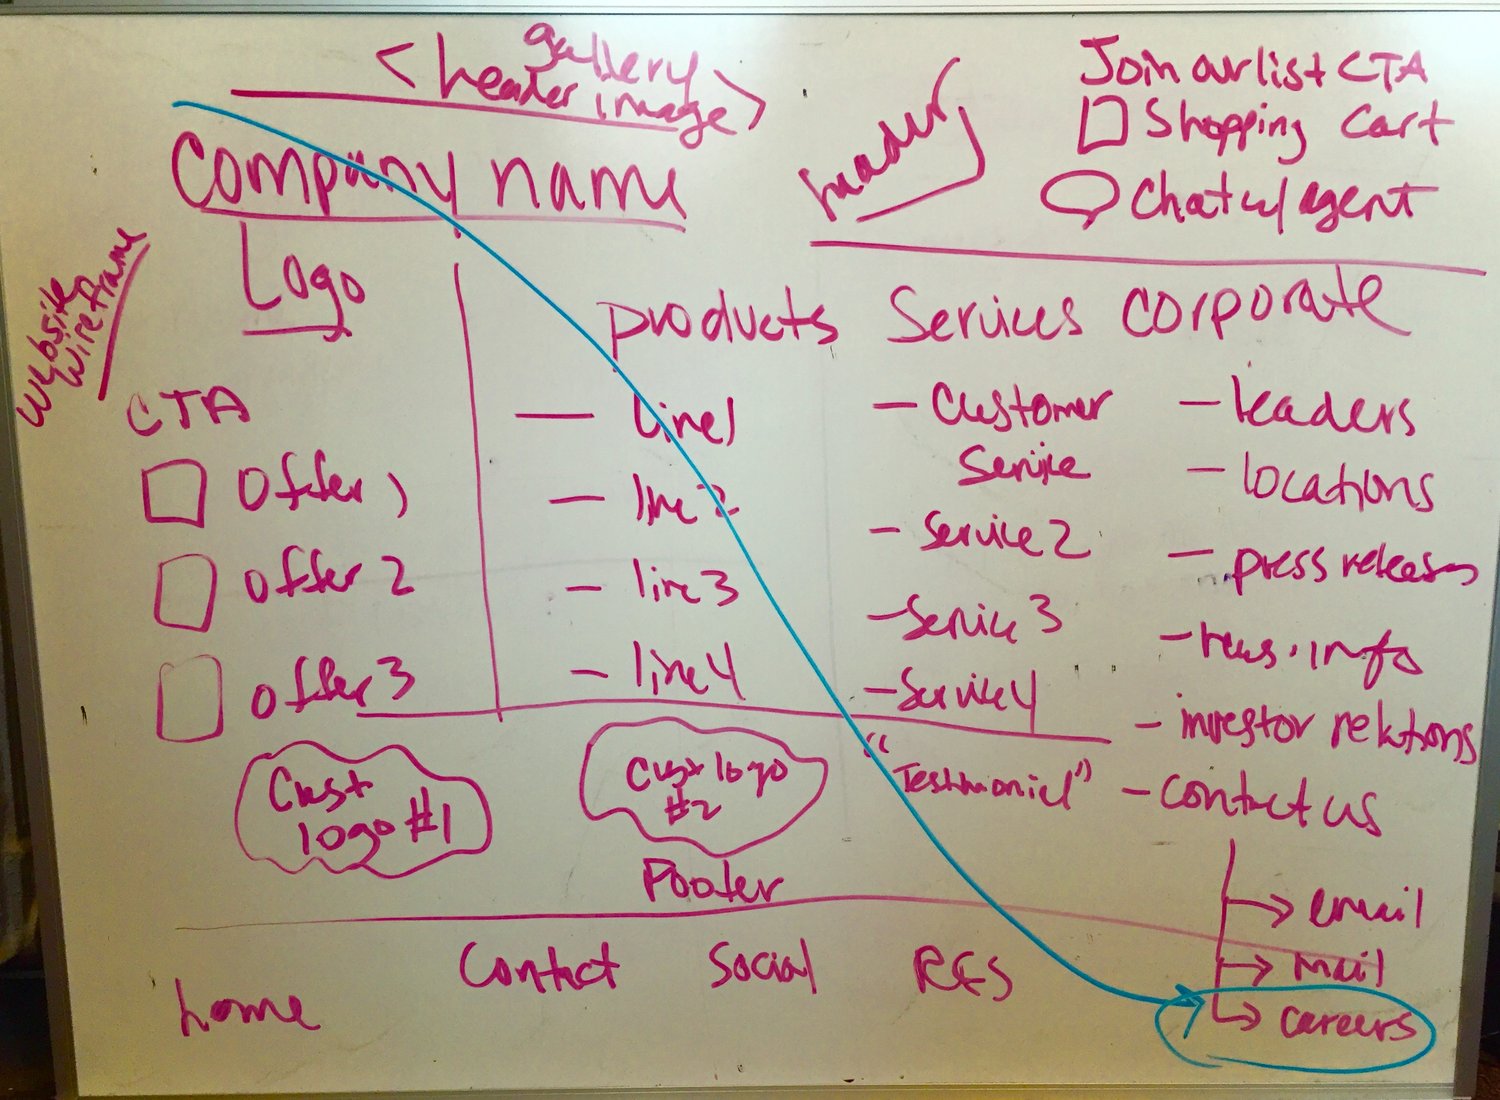 gallery
< header image >
Company name
header
Join our list CTA
Shopping Cart
Chat w/ agent
Website
Wireframe
Logo
CTA
Offer 1
Offer 2
Offer 3
products
— line 1
— line 2
— line 3
— line 4
Services
— Customer
Service
— Service 2
— Service 3
— Service 4
Corporate
— leaders
— locations
— press releases
— news · info
— investor relations
— contact us
→ email
→ mail
→ careers
Cust
logo #1
Cust logo
#2
"Testimonial"
Footer
home
Contact
Social